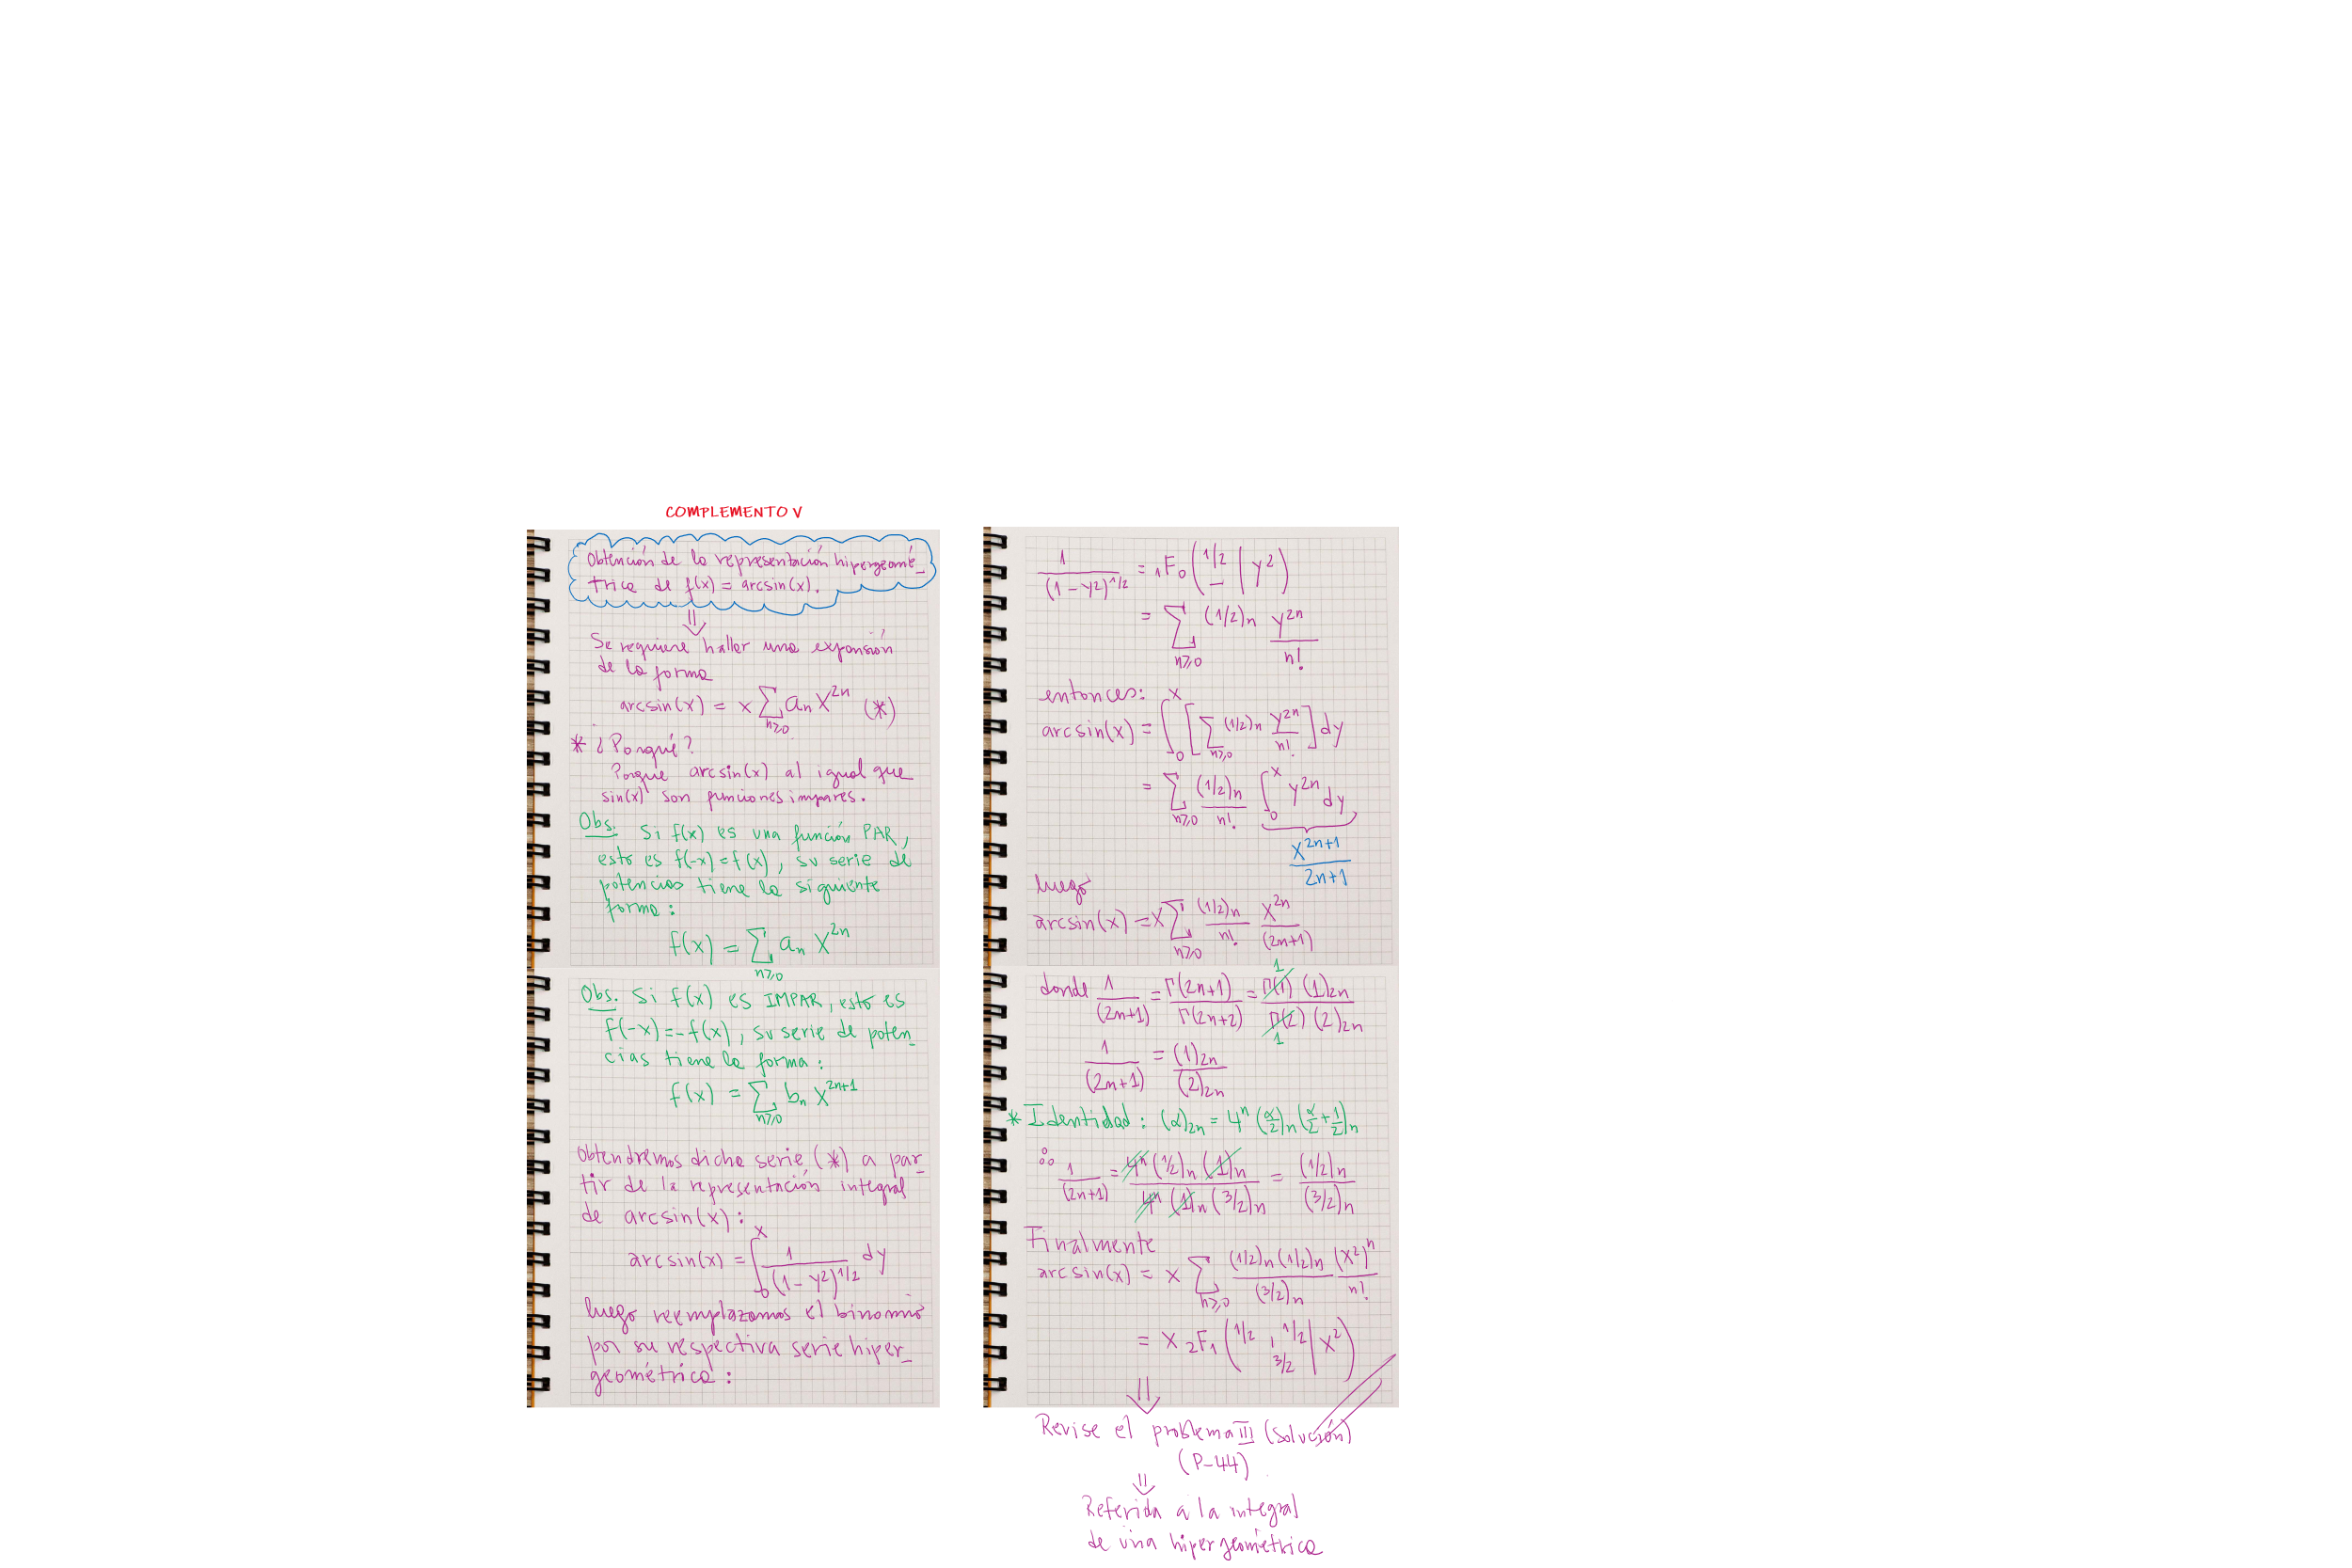 COMPLEMENTO V
Obtención de la representación hipergeomé_
trica de f(x) = arcsin(x).
⇓
Se requiere hallar una expansión
de la forma
arcsin(x) = x ∑_{n≥0} a_n x^{2n} (*)
* ¿Porqué?
Porque arcsin(x) al igual que
sin(x) son funciones impares.
Obs. Si f(x) es una función PAR,
esto es f(-x) = f(x), su serie de
potencias tiene la siguiente
forma:
f(x) = ∑_{n≥0} a_n x^{2n}
Obs. Si f(x) es IMPAR, esto es
f(-x) = -f(x), su serie de poten_
cias tiene la forma:
f(x) = ∑_{n≥0} b_n x^{2n+1}
Obtendremos dicha serie (*) a par_
tir de la representación integral
de arcsin(x):
arcsin(x) = ∫_0^x 1/(1-y²)^{1/2} dy
luego reemplazamos el binomio
por su respectiva serie hiper_
geométrica:
1/(1-y²)^{1/2} = ₁F₀(1/2 ; – | y²)
= ∑_{n≥0} (1/2)_n y^{2n}/n!
entonces:
arcsin(x) = ∫_0^x [∑_{n≥0} (1/2)_n y^{2n}/n!] dy
= ∑_{n≥0} (1/2)_n/n! ∫_0^x y^{2n} dy
x^{2n+1}/2n+1
luego
arcsin(x) = x ∑_{n≥0} (1/2)_n/n! x^{2n}/(2n+1)
donde 1/(2n+1) = Γ(2n+1)/Γ(2n+2) = Γ(1) (1)_{2n}/Γ(2) (2)_{2n}
1/(2n+1) = (1)_{2n}/(2)_{2n}
* Identidad: (α)_{2n} = 4^n (α/2)_n (α/2 + 1/2)_n
∴ 1/(2n+1) = 4^n (1/2)_n (1)_n / 4^n (1)_n (3/2)_n = (1/2)_n/(3/2)_n
Finalmente
arcsin(x) = x ∑_{n≥0} (1/2)_n (1/2)_n/(3/2)_n (x²)^n/n!
= x ₂F₁(1/2, 1/2 ; 3/2 | x²)
⇓
Revise el problema III (solución)
(P-44)
⇓
Referida a la integral
de una hipergeométrica